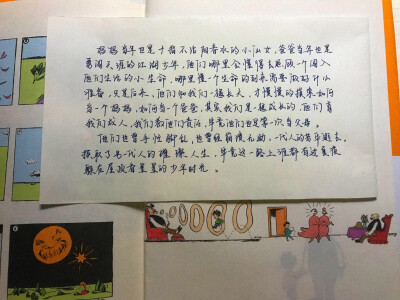 妈妈当年也是十指不沾阳春水的小仙女，爸爸当年也是
勇闯天涯的江湖少年，他们哪里会懂得去照顾一个闯入
他们生活的小生命，哪里懂一个生命的到来需要做好什么
准备，只是后来，他们和我们一起长大，才慢慢的摸索如何
当一个妈妈，如何当一个爸爸，其实我们是一起成长的，他们育
我们成人，我们教他们责任，毕竟他们也是第一次当父母。
他们也曾手忙脚乱，也曾经崩溃无助，一代人的芳华逝去，
换取了另一代人的璀璨人生，毕竟这一路上谁都有过
躲在屋顶看星星的少年时光。